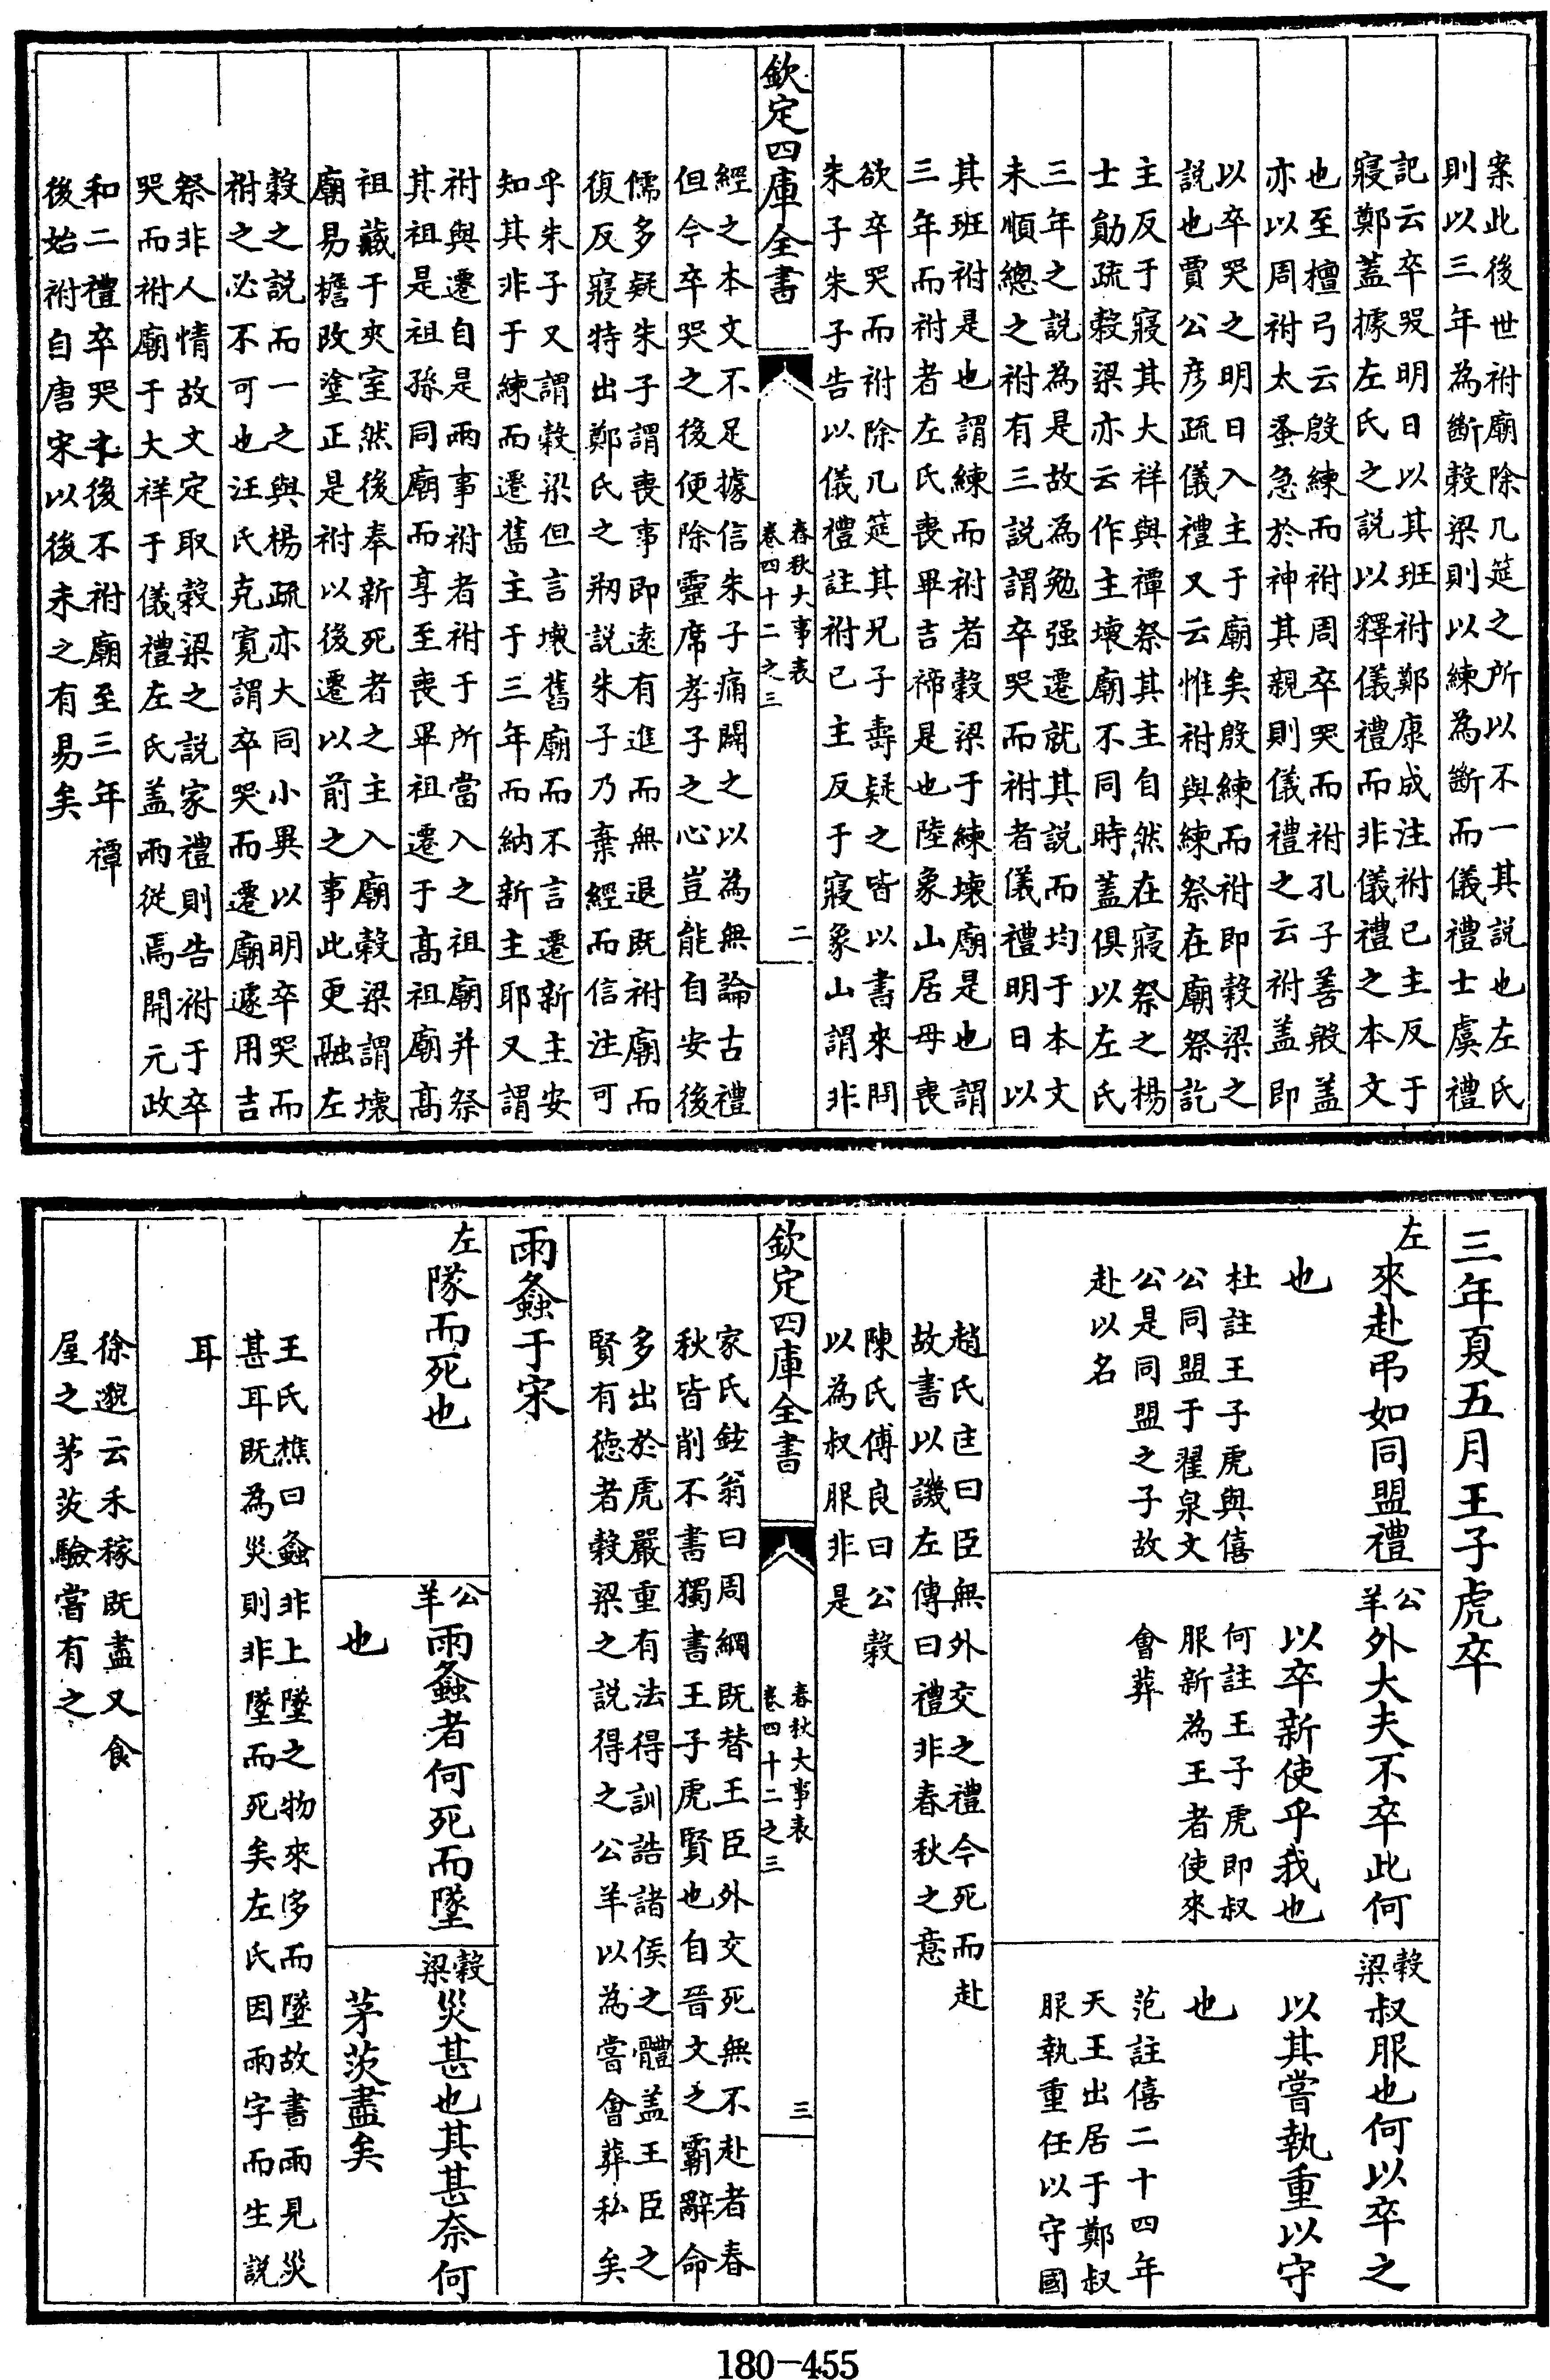 案此後世祔廟除几筵之所以不一其説也左氏
則以三年為斷穀梁則以練為斷而儀禮士虞禮
記云卒哭明日以其班祔鄭康成注祔已主反于
寢鄭蓋據左氏之説以釋儀禮而非儀禮之本文
也至檀弓云殷練而祔周卒哭而祔孔子善殷蓋
亦以周祔太蚤急於神其親則儀禮之云祔蓋即
以卒哭之明日入主于廟矣殷練而祔即穀梁之
説也賈公彦疏儀禮又云惟祔與練祭在廟祭訖
主反于寢其大祥與禫祭其主自然在寢祭之楊
士勛疏穀梁亦云作主壞廟不同時蓋俱以左氏
三年之説為是故為勉强遷就其説而均于本文
未順總之祔有三説謂卒哭而祔者儀禮明日以
其班祔是也謂練而祔者穀梁于練壞廟是也謂
三年而祔者左氏喪畢吉禘是也陸象山居母喪
欲卒哭而祔除几筵其兄子壽疑之皆以書來問
朱子朱子告以儀禮註祔已主反于寢象山謂非
欽定四庫全書
春秋大事表
卷四十二之三
二
經之本文不足據信朱子痛闢之以為無論古禮
但今卒哭之後便除靈席孝子之心豈能自安後
儒多疑朱子謂喪事即遠有進而無退既祔廟而
復反寢特出鄭氏之剏説朱子乃棄經而信注可
乎朱子又謂穀梁但言壞舊廟而不言遷新主安
知其非于練而遷舊主于三年而納新主耶又謂
祔與遷自是兩事祔者祔于所當入之祖廟并祭
其祖是祖孫同廟而享至喪畢祖遷于髙祖廟髙
祖藏于夾室然後奉新死者之主入廟穀梁謂壞
廟易檐改塗正是祔以後遷以前之事此更融左
穀之説而一之與楊疏亦大同小異以明卒哭而
祔之必不可也汪氏克寛謂卒哭而遷廟遽用吉
祭非人情故文定取穀梁之説家禮則告祔于卒
哭而祔廟于大祥于儀禮左氏蓋兩從焉開元政
和二禮卒哭後不祔廟至三年禫
後始祔自唐宋以後未之有易矣
三年夏五月王子虎卒
左
來赴弔如同盟禮
也
杜註王子虎與僖
公同盟于翟泉文
公是同盟之子故
赴以名
公羊
外大夫不卒此何
以卒新使乎我也
何註王子虎即叔
服新為王者使來
會葬
穀梁
叔服也何以卒之
以其嘗執重以守
也
范註僖二十四年
天王出居于鄭叔
服執重任以守國
趙氏匡曰臣無外交之禮今死而赴
故書以譏左傳曰禮非春秋之意
陳氏傅良曰公穀
以為叔服非是
欽定四庫全書
春秋大事表
卷四十二之三
三
家氏鉉翁曰周綱既替王臣外交死無不赴者春
秋皆削不書獨書王子虎賢也自晉文之霸辭命
多出於虎嚴重有法得訓誥諸侯之體蓋王臣之
賢有徳者穀梁之説得之公羊以為嘗會葬私矣
雨螽于宋
左
隊而死也
公羊
雨螽者何死而墜
也
穀梁
災甚也其甚奈何
茅茨盡矣
王氏樵曰螽非上墜之物來多而墜故書雨見災
甚耳既為災則非墜而死矣左氏因雨字而生説
耳
徐邈云禾稼既盡又食
屋之茅茨驗嘗有之
180-455